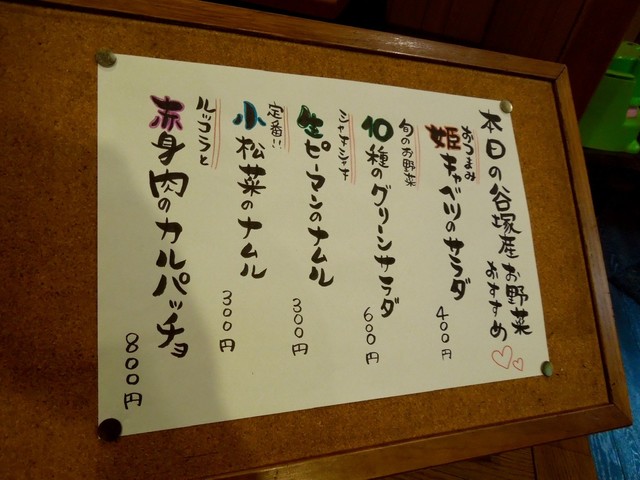 本日の谷塚産お野菜
おすすめ
おつまみ
姫キャベツのサラダ
400円
旬のお野菜
10種のグリーンサラダ
600円
シャキシャキ
生ピーマンのナムル
300円
定番!!
小松菜のナムル
300円
ルッコラと
赤身肉のカルパッチョ
800円